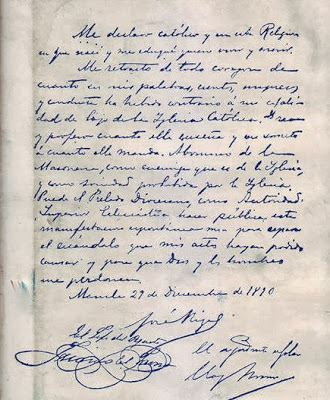 Me declaro católico y en esta Religion
en que nací y me eduqué quiero vivir y morir.
Me retracto de todo corazon de
cuanto en mis palabras, escritos, impresos
y conducta ha habido contrario á mi calidad
dad de hijo de la Iglesia Católica. Creo
y profeso cuanto ella enseña y me someto
á cuanto ella manda. Abomino de la
Masonería, como enemiga que es de la Iglesia
y como sociedad prohibida por la Iglesia.
Puede el Prelado Diocesano, como Autoridad
Superior Eclesiástica hacer pública esta
manifestacion espontánea mia para reparar
el escándalo que mis actos hayan podido
causar y para que Dios y los hombres
me perdonen.
Manila 29 de Diciembre de 1890
José Rizal
El Jefe del Piquete
El ayudante de Plaza
Juan del Fresno
Eloy Moure